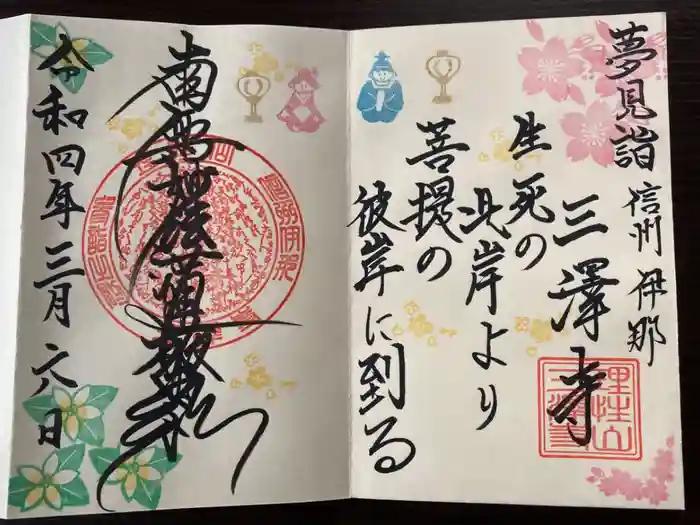 夢見詣
信州 伊那
三澤寺
生死の
此岸より
菩提の
彼岸に到る
南無妙法蓮華経
令和四年三月六日